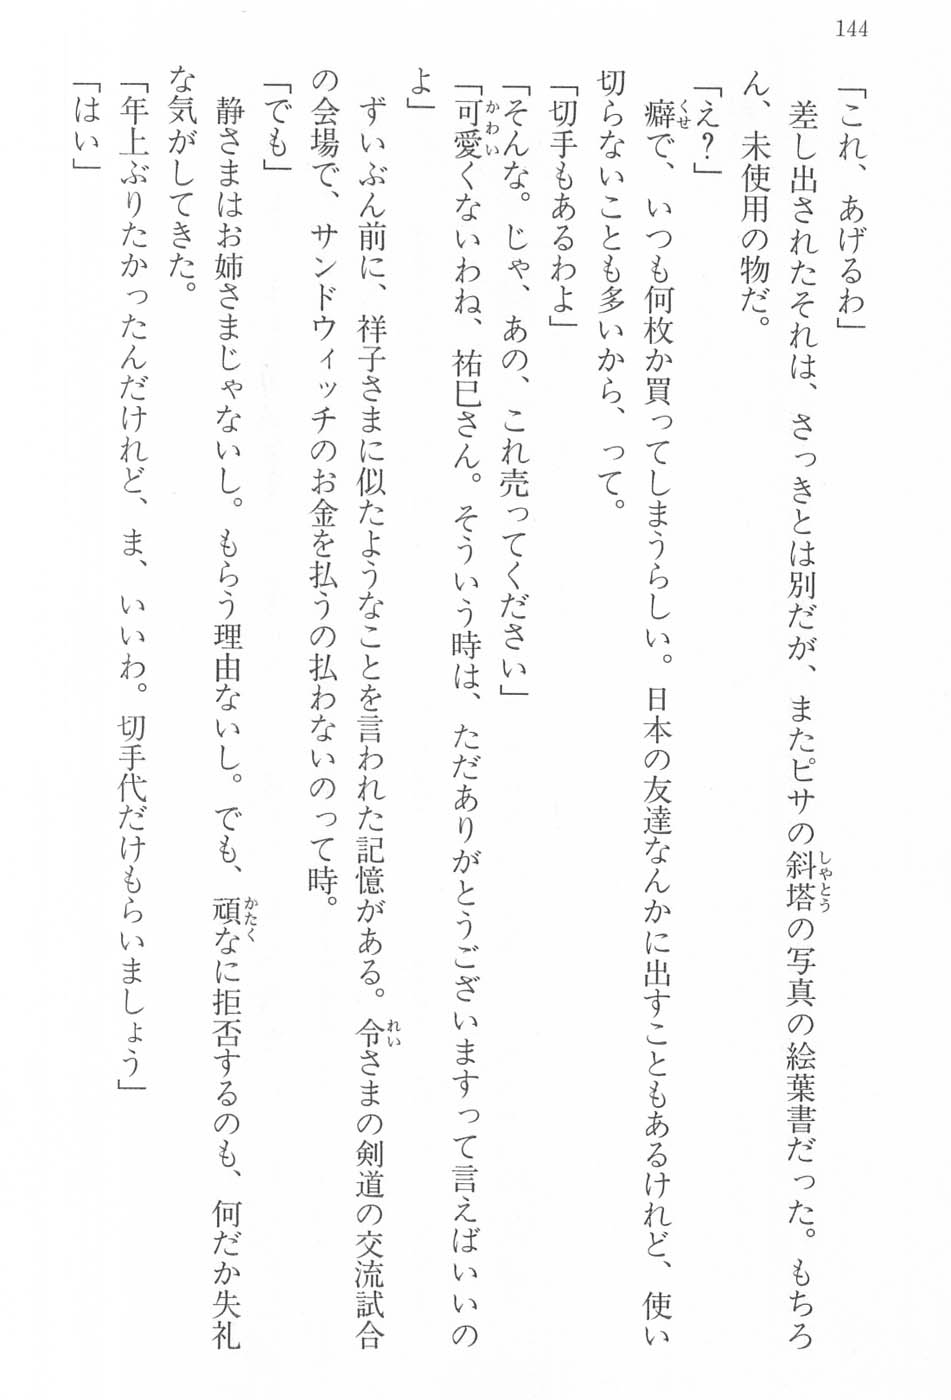 144
「これ、あげるわ」
差し出されたそれは、さっきとは別だが、またピサの斜塔の写真の絵葉書だった。もちろ
ん、未使用の物だ。
「え？」
癖で、いつも何枚か買ってしまうらしい。日本の友達なんかに出すこともあるけれど、使い
切らないことも多いから、って。
「切手もあるわよ」
「そんな。じゃ、あの、これ売ってください」
「可愛くないわね、祐巳さん。そういう時は、ただありがとうございますって言えばいいの
よ」
ずいぶん前に、祥子さまに似たようなことを言われた記憶がある。令さまの剣道の交流試合
の会場で、サンドウィッチのお金を払うの払わないのって時。
「でも」
静さまはお姉さまじゃないし。もらう理由ないし。でも、頑なに拒否するのも、何だか失礼
な気がしてきた。
「年上ぶりたかったんだけれど、ま、いいわ。切手代だけもらいましょう」
「はい」